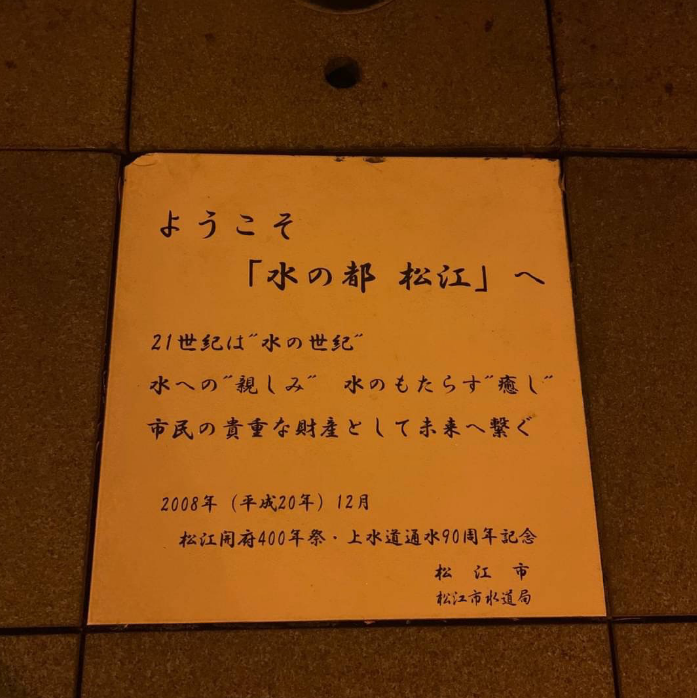 ようこそ
「水の都 松江」へ
21世紀は"水の世紀"
水への"親しみ" 水のもたらす"癒し"
市民の貴重な財産として未来へ繋ぐ
2008年（平成20年）12月
松江開府400年祭・上水道通水90周年記念
松江市
松江市水道局